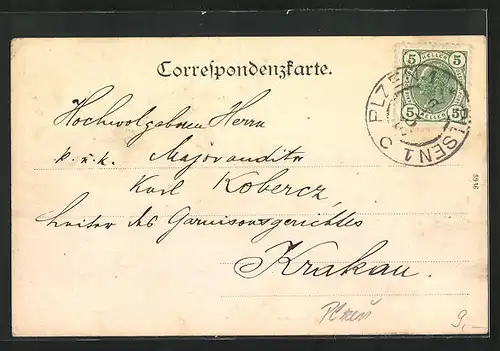 Correspondenzkarte.
5 HELLER 5
5 HELLER 5
PLZEŇ 1
PILSEN 1 C
Hochwolgebornen Herrn
k. u. k. Majorauditor
Karl Kobercz,
Leiter des Garnisonsgerichtes
Krakau.
3916
Plzeň
9,—